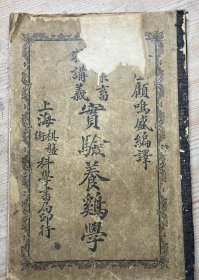 顧鳴盛編譯
家畜
講義
實驗養鷄學
上海棋盤街科學書局印行